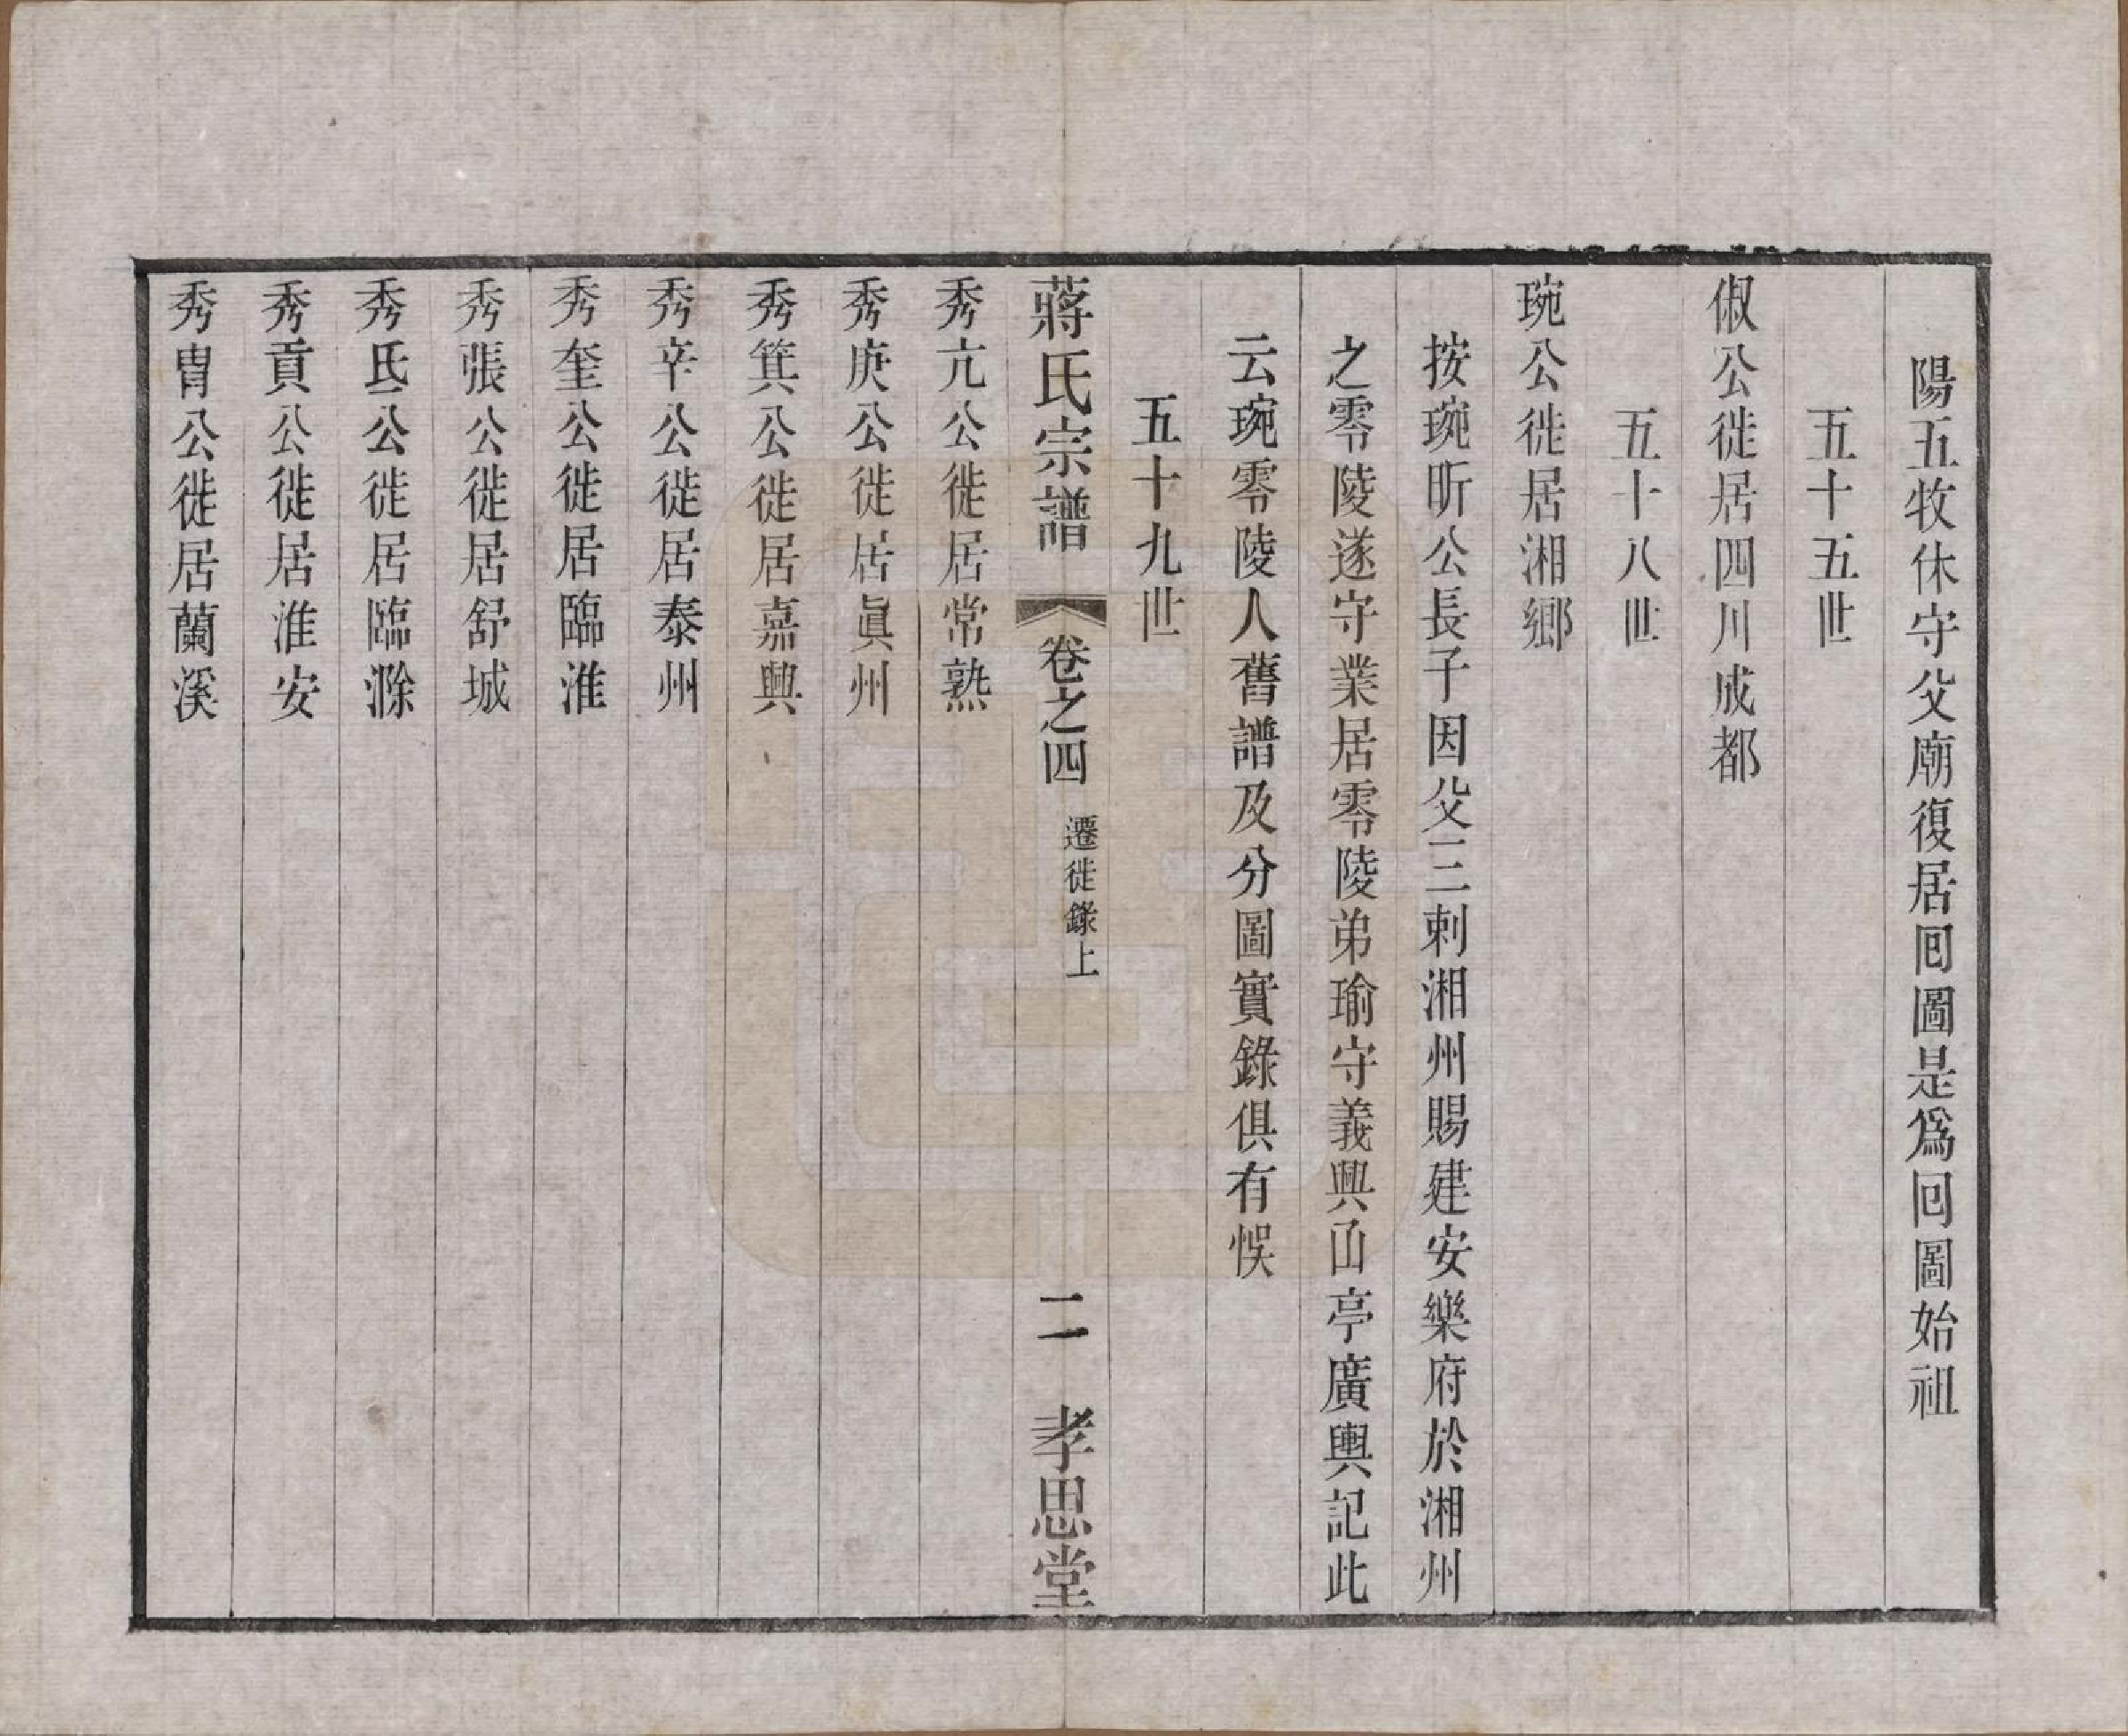 陽五牧休守父廟復居囘圖是爲囘圖始祖
五十五世
俶公徙居四川成都
五十八世
琬公徙居湘鄉
按琬昕公長子因父三刺湘州賜建安樂府於湘州
之零陵遂守業居零陵弟瑜守義興山亭廣輿記此
云琬零陵人舊譜及分圖實錄俱有悞
五十九世
蔣氏宗譜
卷之四
遷徙錄上
二
孝思堂
秀亢公徙居常熟
秀庚公徙居眞州
秀箕公徙居嘉興
秀辛公徙居泰州
秀奎公徙居臨淮
秀張公徙居舒城
秀氐公徙居臨滁
秀貢公徙居淮安
秀胄公徙居蘭溪